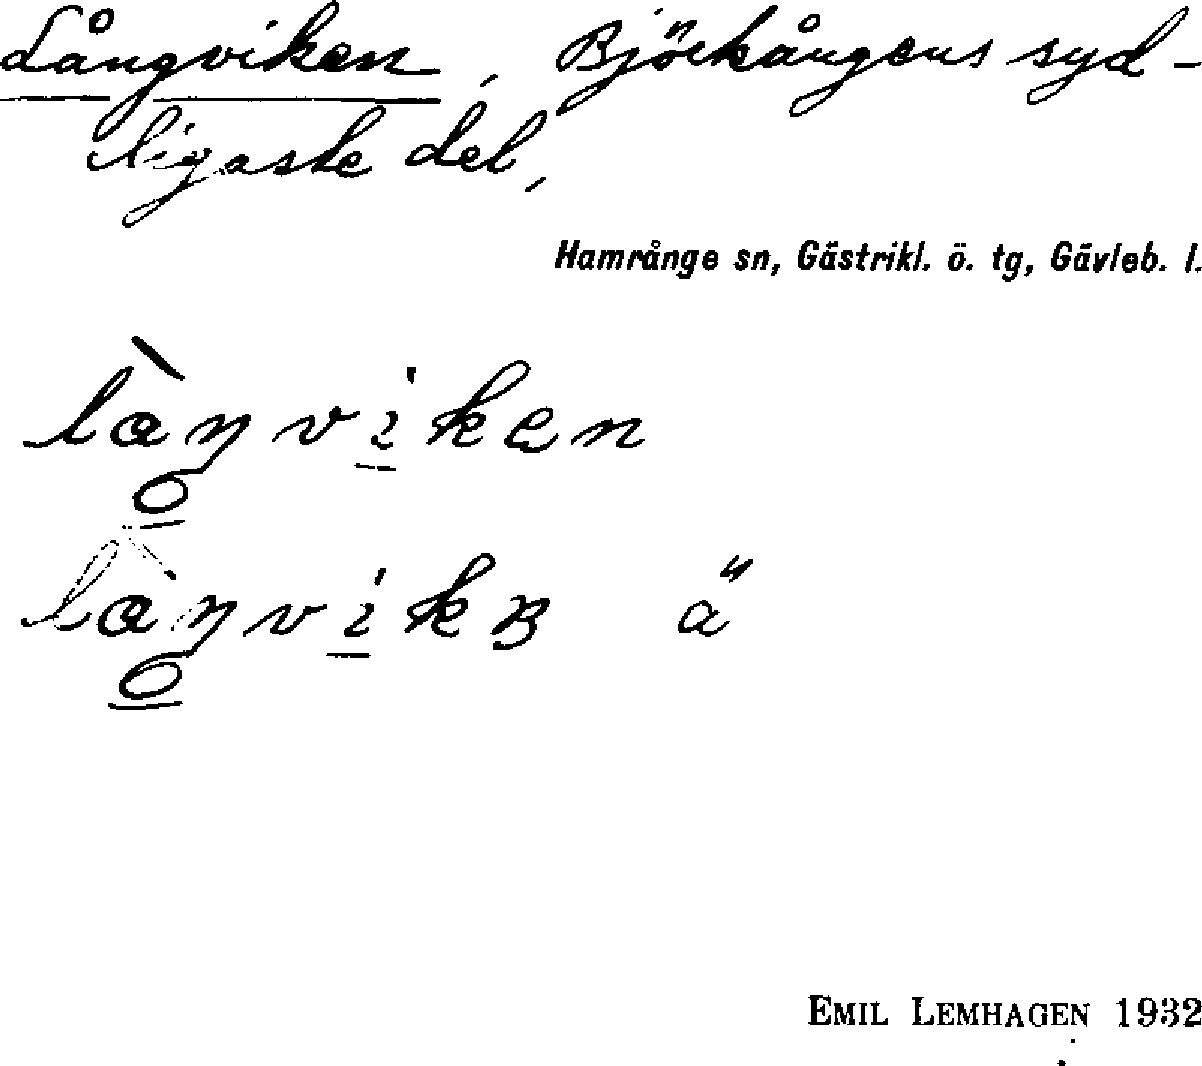 Långviken, Björkångens syd-
ligaste del,
Hamrånge sn, Gästrikl. ö. tg, Gävleb. l.
EMIL LEMHAGEN 1932